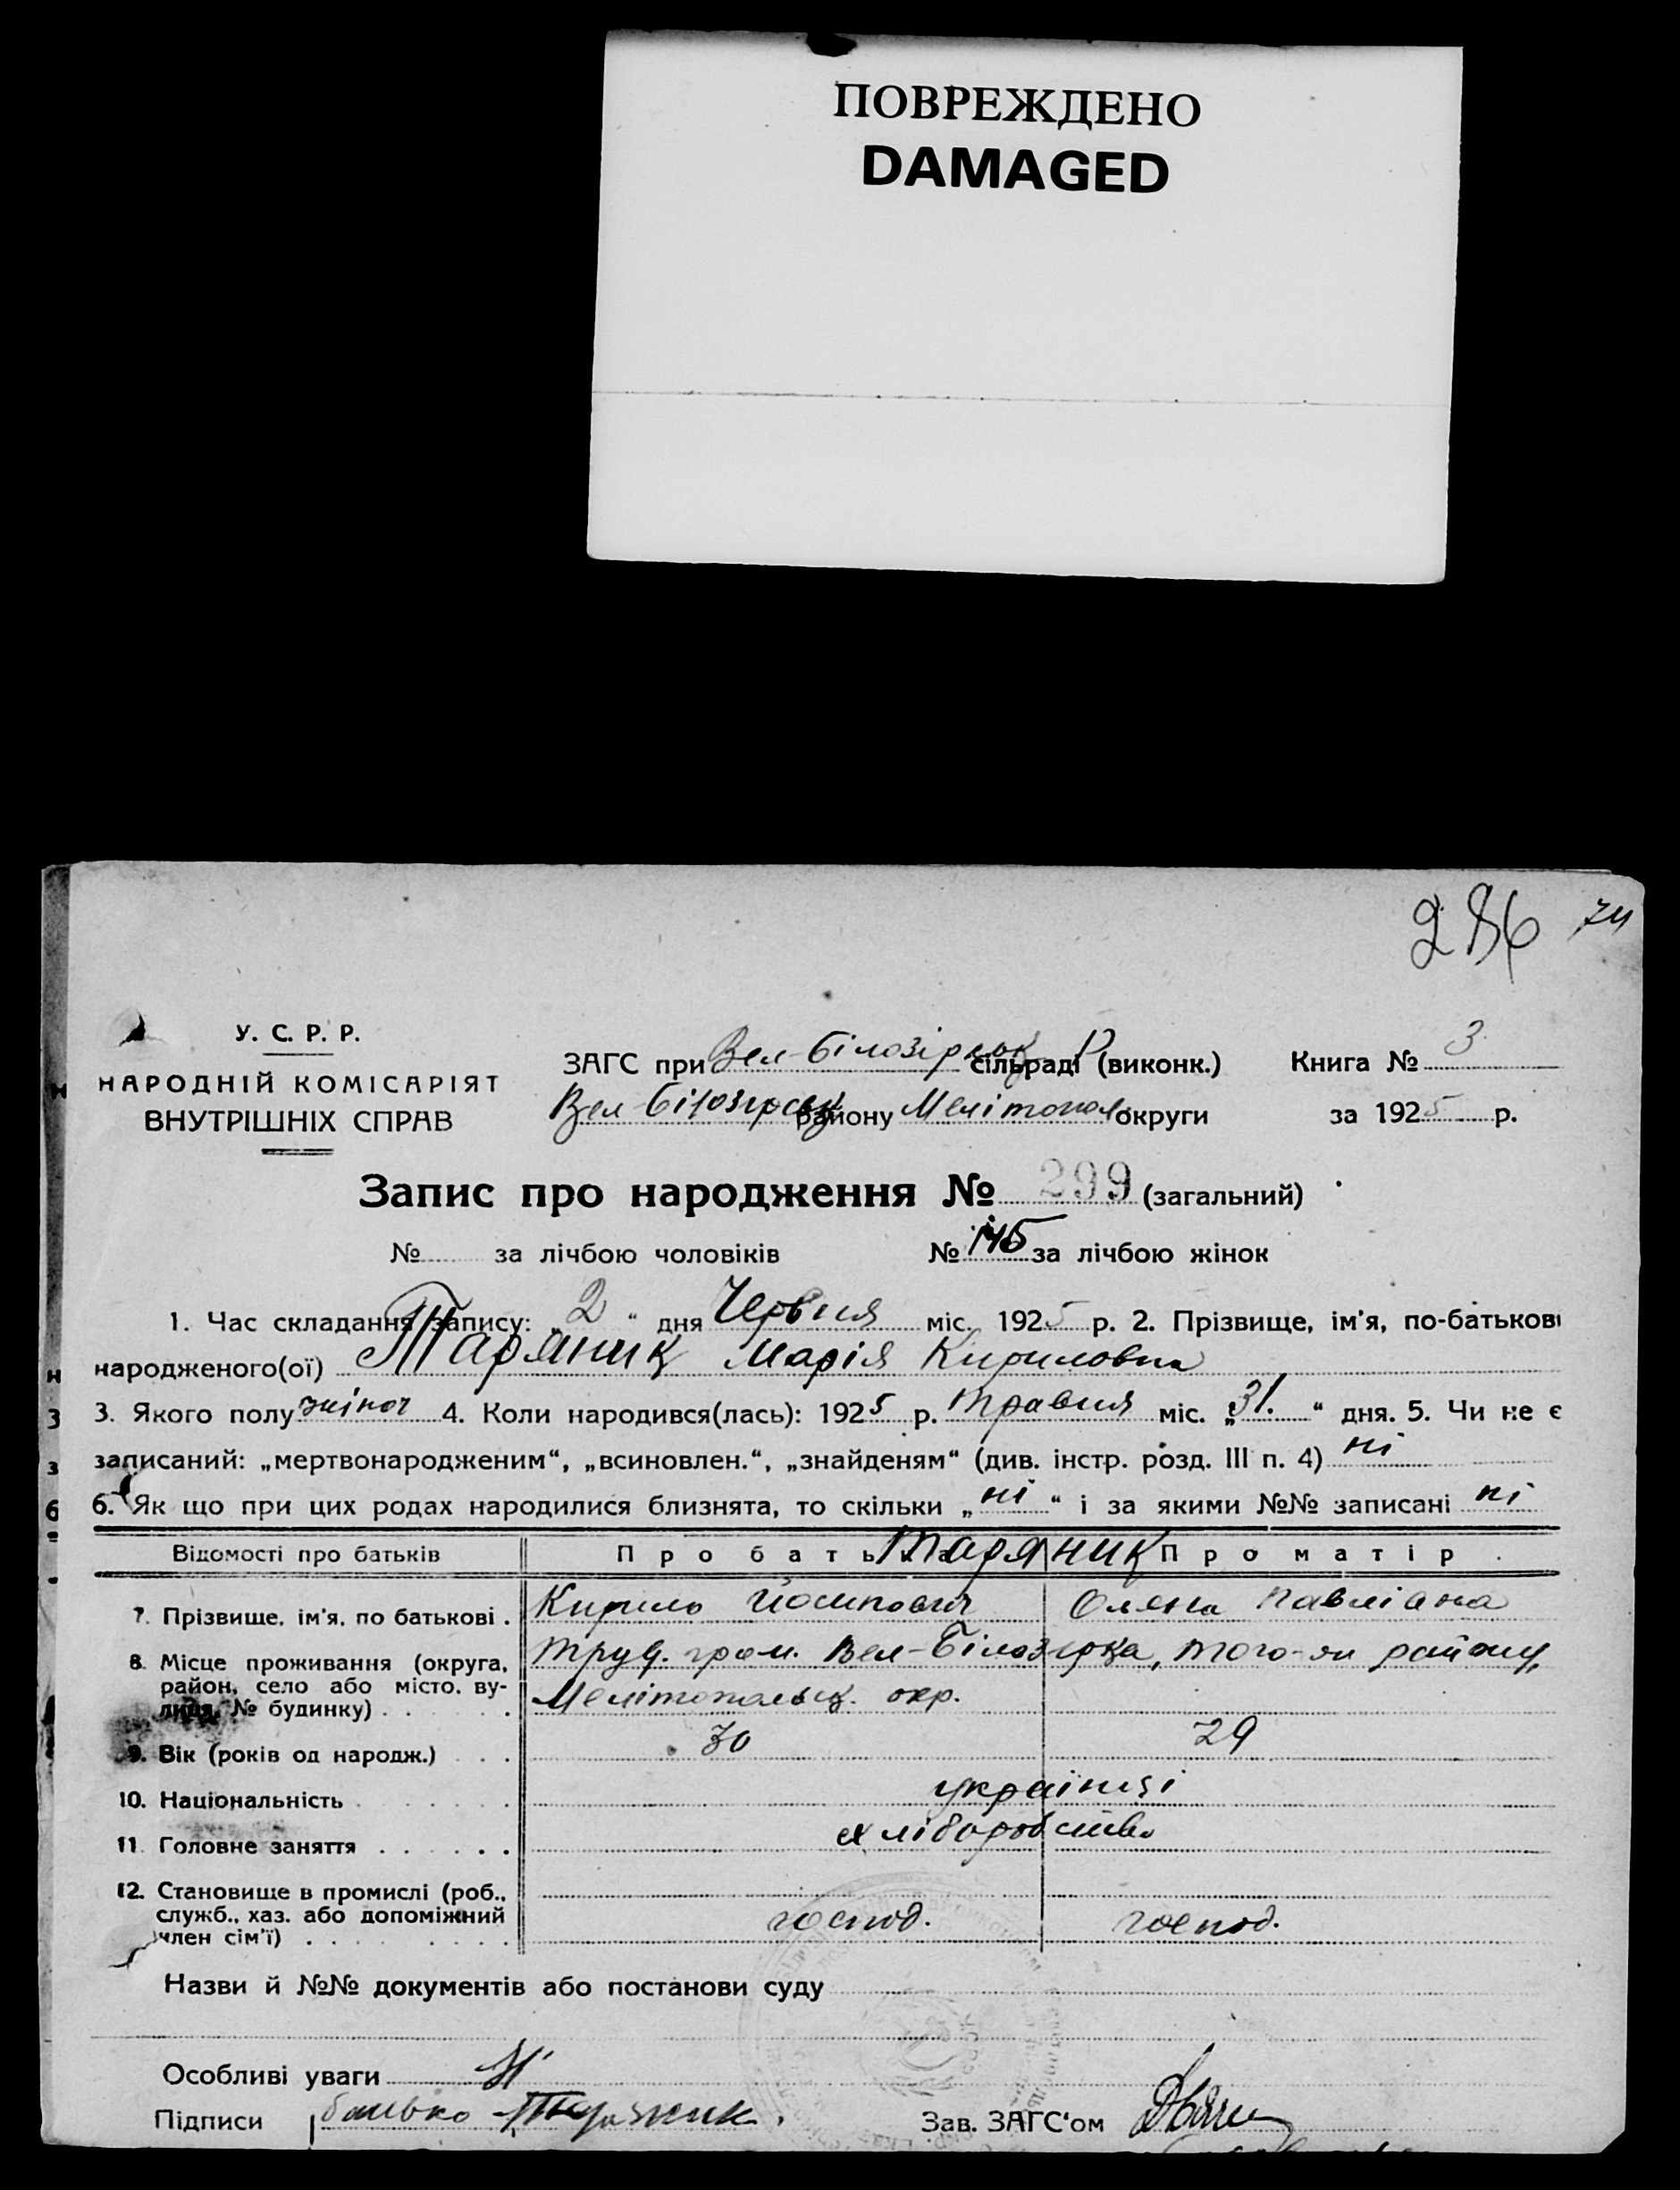 ПОВРЕЖДЕНО
DAMAGED
286 74
У. С. Р. Р.
НАРОДНІЙ КОМІСАРІЯТ
ВНУТРІШНІХ СПРАВ
ЗАГС при Вел-Білозірськ. Р сільраді (виконк.) Книга № 3
Вел-Білозірськ району Мелітопол. округи за 1925 р.
Запис про народження № 299 (загальний)
№ за лічбою чоловіків № 145 за лічбою жінок
1. Час складання запису: „2“ дня Червня міс. 1925 р. 2. Прізвище, ім'я, по-батькові
народженого(ої) Таряник Марія Кириловна
3. Якого полу жіноч 4. Коли народився(лась): 1925 р. Травня міс. „31.“ дня. 5. Чи не є
записаний: „мертвонародженим“, „всиновлен.“, „знайденям“ (див. інстр. розд. III п. 4) ні
6. Як що при цих родах народилися близнята, то скільки „ні“ і за якими №№ записані ні
Відомості про батьків Про батька Таряник Про матір
7. Прізвище, ім'я, по батькові . Кирило Йосипович Олена Павлівна
8. Місце проживання (округа, Труд. гром. Вел-Білозірка, того-ж району,
район, село або місто, ву- Мелітопольськ. окр.
лиця, № будинку)
9. Вік (років од народж.) 30 29
10. Національність українці
11. Головне заняття хліборобство
12. Становище в промислі (роб.,
служб., хаз. або допоміжний господ. господ.
член сім'ї)
Назви й №№ документів або постанови суду
Особливі уваги
Підписи батько Таряник. Зав. ЗАГС'ом